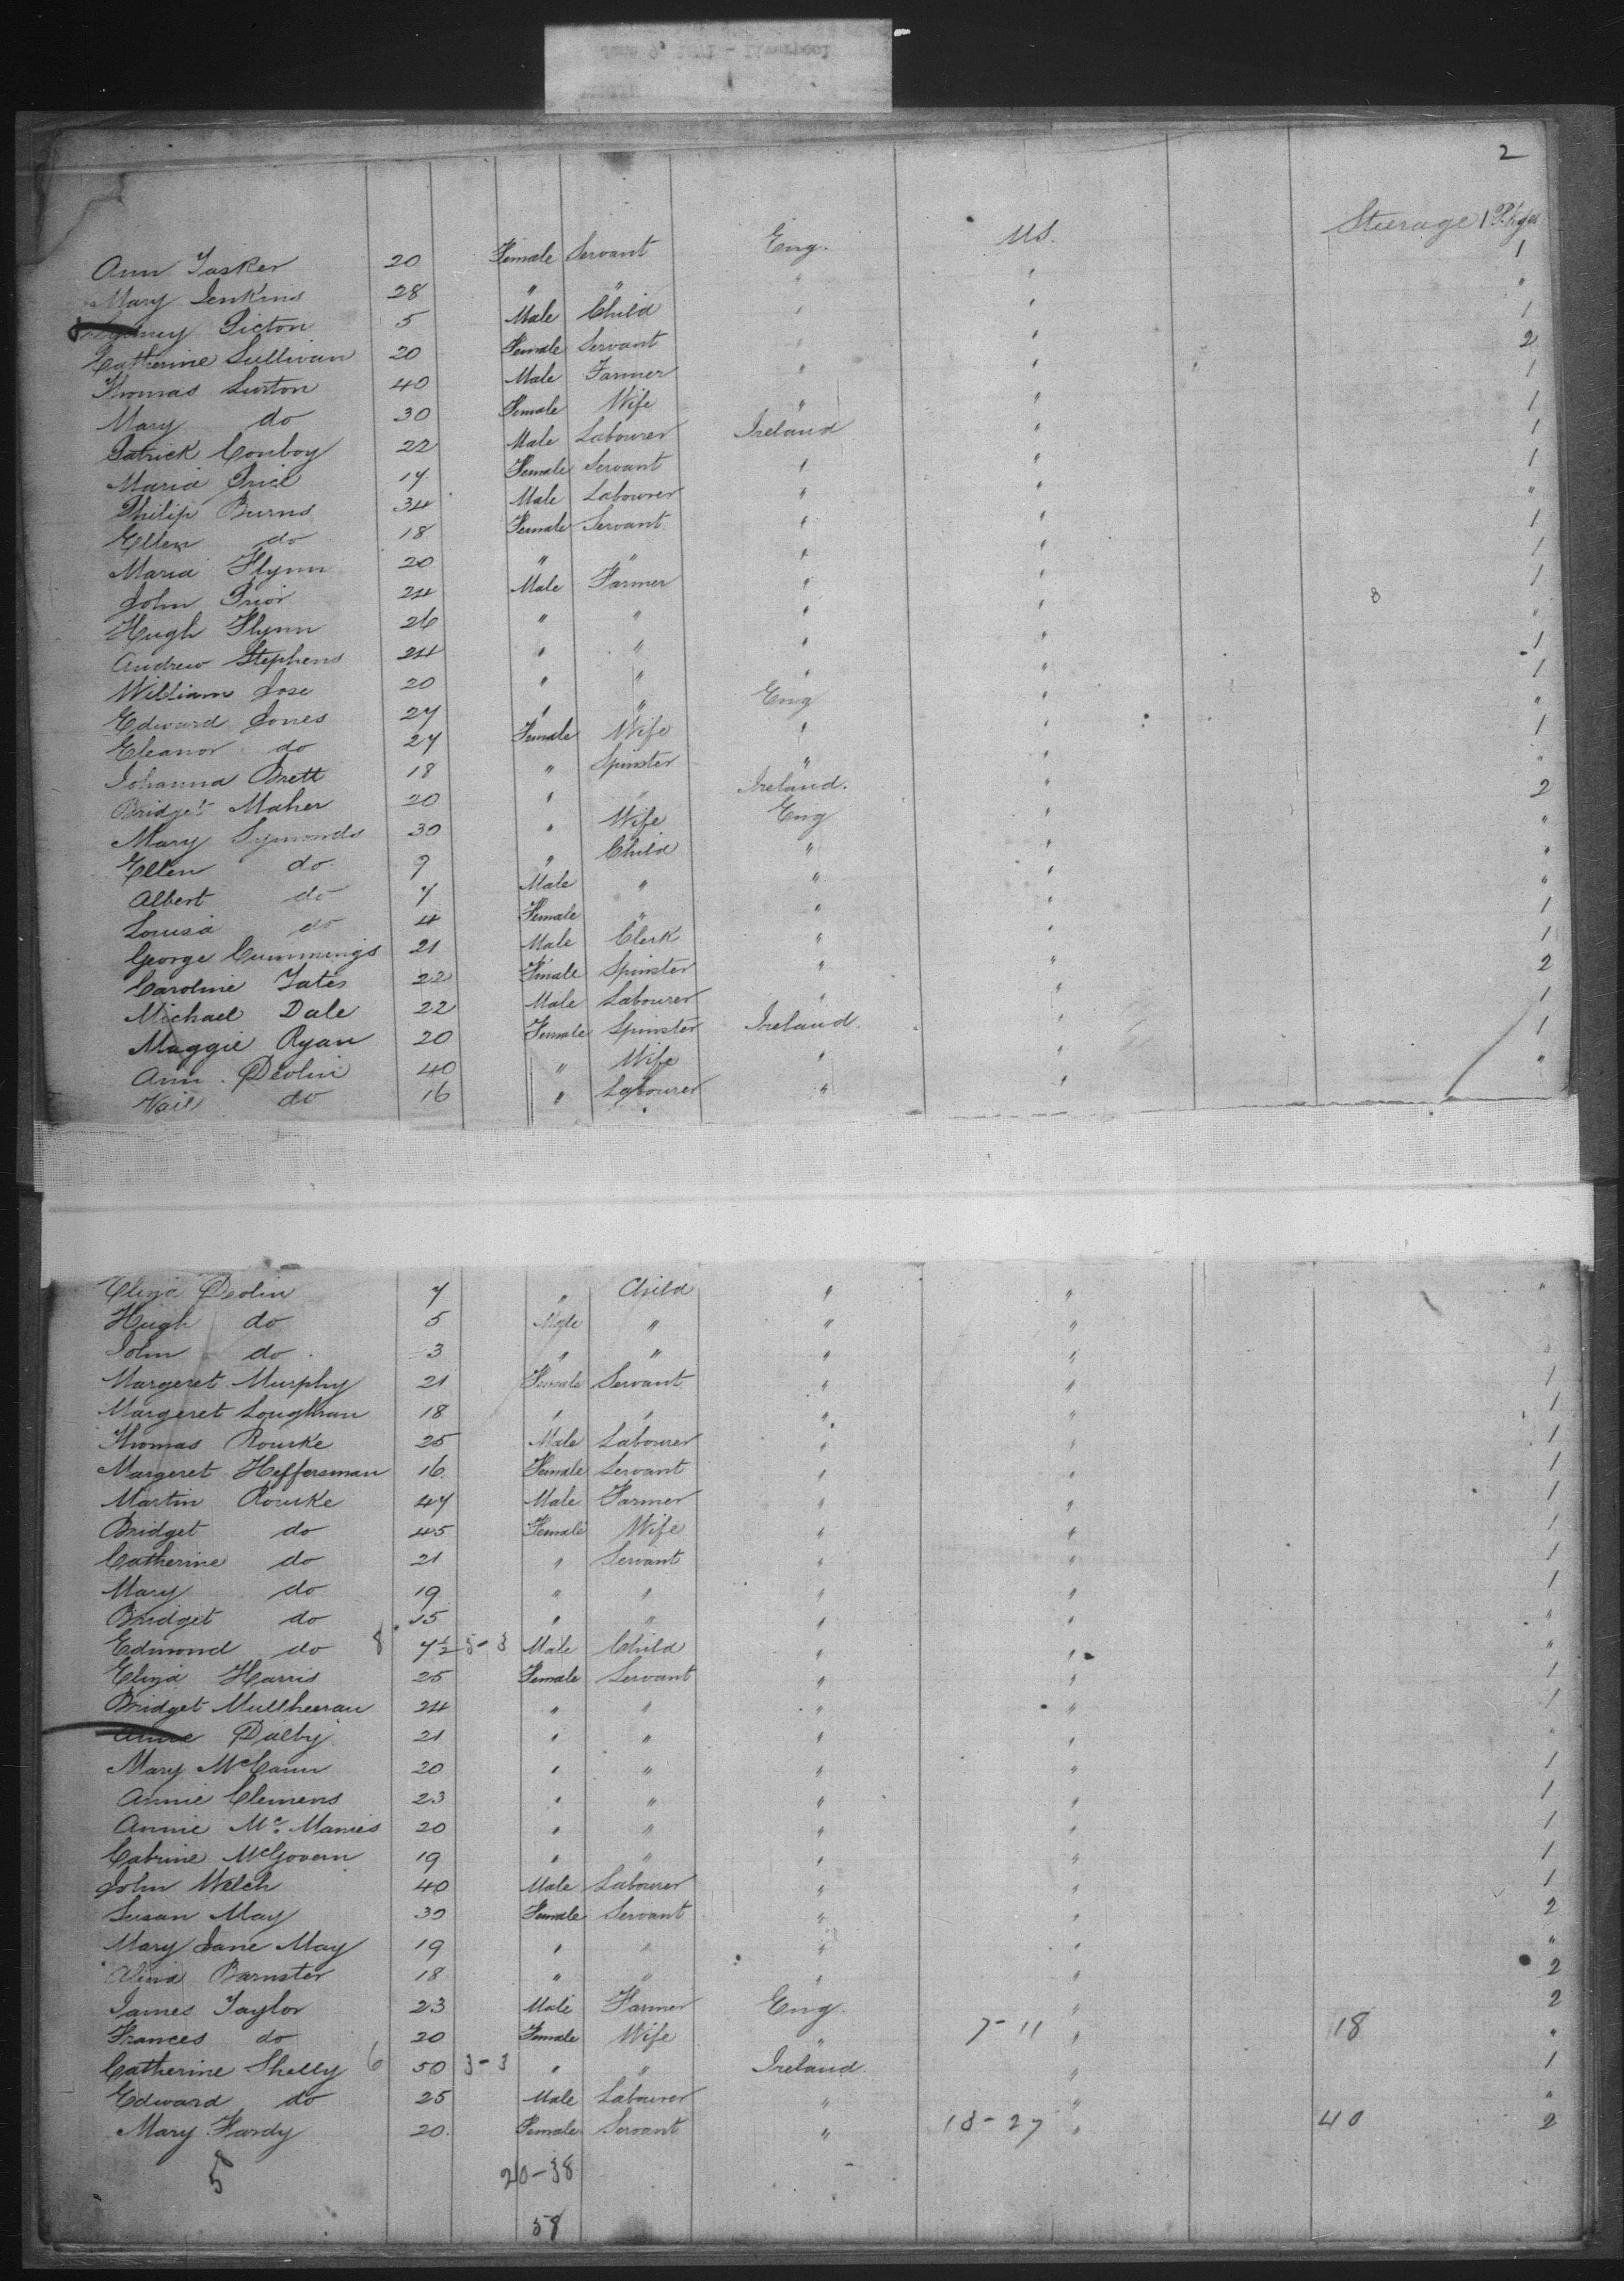 2
Steerage 1 Pkgs
Ann Tasker 20 Female Servant Eng. US. 1
Mary Jenkins 28 " " " " "
Sydney Picton 5 Male Child " " 1
Catherine Sullivan 20 Female Servant " " 2
Thomas Surton 40 Male Farmer " " 1
Mary do 30 Female Wife " " 1
Patrick Conboy 22 Male Labourer Ireland " 1
Maria Price 17 Female Servant " " 1
Philip Burns 34 Male Labourer " " "
Ellen do 18 Female Servant " " 1
Maria Flynn 20 " " " " 1
John Prior 24 Male Farmer " " 8 1
Hugh Flynn 26 " " " " "
Andrew Stephens 24 " " " " 1
William Jose 20 " " " " 1
Edward Jones 27 " " Eng " "
Eleanor do 27 Female Wife " " 1
Johanna Brett 18 " Spinster " " "
Bridget Maher 20 " " Ireland. " 2
Mary Symonds 30 " Wife Eng " "
Ellen do 9 " Child " " "
Albert do 7 Male " " " "
Louisa do 4 Female " " " 1
George Cummings 21 Male Clerk " " 1
Caroline Yates 22 Female Spinster " " 2
Michael Dale 22 Male Labourer " " 1
Maggie Ryan 20 Female Spinster Ireland. " 1
Ann Devlin 40 " Wife " " "
do 16 " Labourer " "
Eliza Devlin 7 " Child " " "
Hugh do 5 Male " " "
John do 3 " " " " "
Margeret Murphy 21 Female Servant " " 1
Margeret Loughran 18 " " " " 1
Thomas Rourke 25 Male Labourer " " 1
Margeret Heffersman 16 Female Servant " " 1
Martin Rourke 47 Male Farmer " " 1
Bridget do 45 Female Wife " " 1
Catherine do 21 " Servant " " 1
Mary do 19 " " " " 1
Bridget do 15 " " " " "
Edmond do 8 7½ 5-3 Male Child " " "
Eliza Harris 25 Female Servant " " 1
Bridget Mullheeran 24 " " " " 1
Dalby 21 " " " " "
Mary McCann 20 " " " " 1
Annie Clemens 23 " " " " 1
Annie Mc. Manies 20 " " " " 1
Catrine McGovern 19 " " " " 1
John Welch 40 Male Labourer " " 1
Susan May 30 Female Servant " " 2
Mary Jane May 19 " " " " "
Barnster 18 " " " " 2
James Taylor 23 Male Farmer Eng. " 2
Frances do 20 Female Wife " 7-11 " 18 "
Catherine Shelly 6 50 3-3 " " Ireland. " 1
Edward do 25 Male Labourer " " "
Mary Hardy 20. Female Servant " 18-27 " 40 2
5
20-38
58